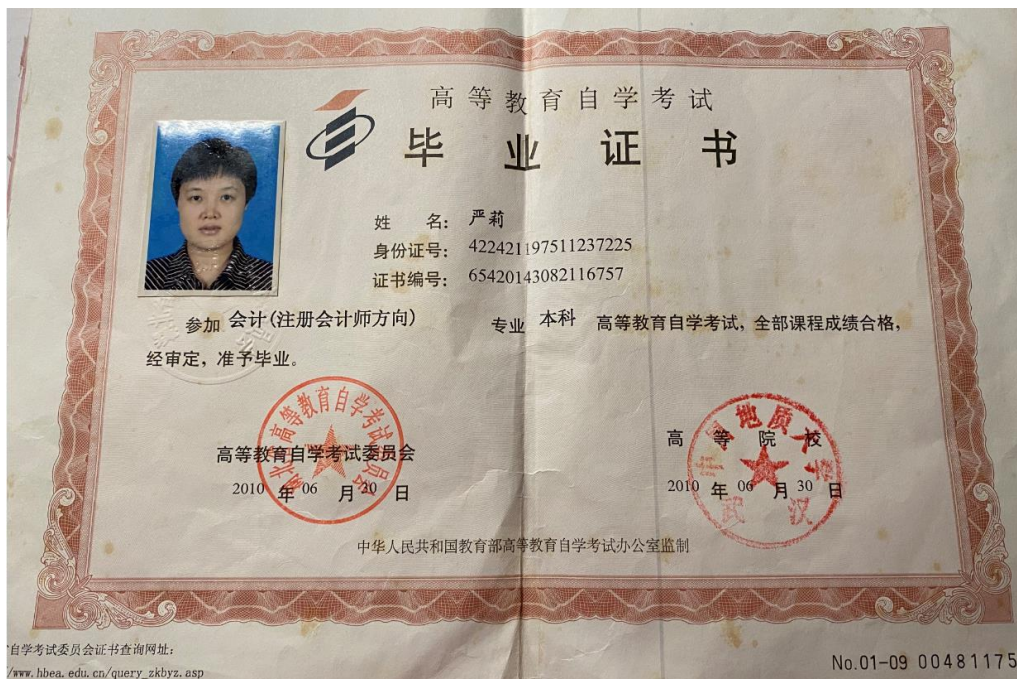 高等教育自学考试
毕业证书
姓 名： 严莉
身份证号： 422421197511237225
证书编号： 65420143082116757
参加 会计(注册会计师方向) 专业 本科 高等教育自学考试，全部课程成绩合格，
经审定，准予毕业。
湖北省高等教育自学考试委员会
高等教育自学考试委员会
2010 年 06 月 30 日
中国地质大学
武汉
高等院校
2010 年 06 月 30 日
中华人民共和国教育部高等教育自学考试办公室监制
自学考试委员会证书查询网址：
/www.hbea.edu.cn/query_zkbyz.asp
No.01-09 00481175